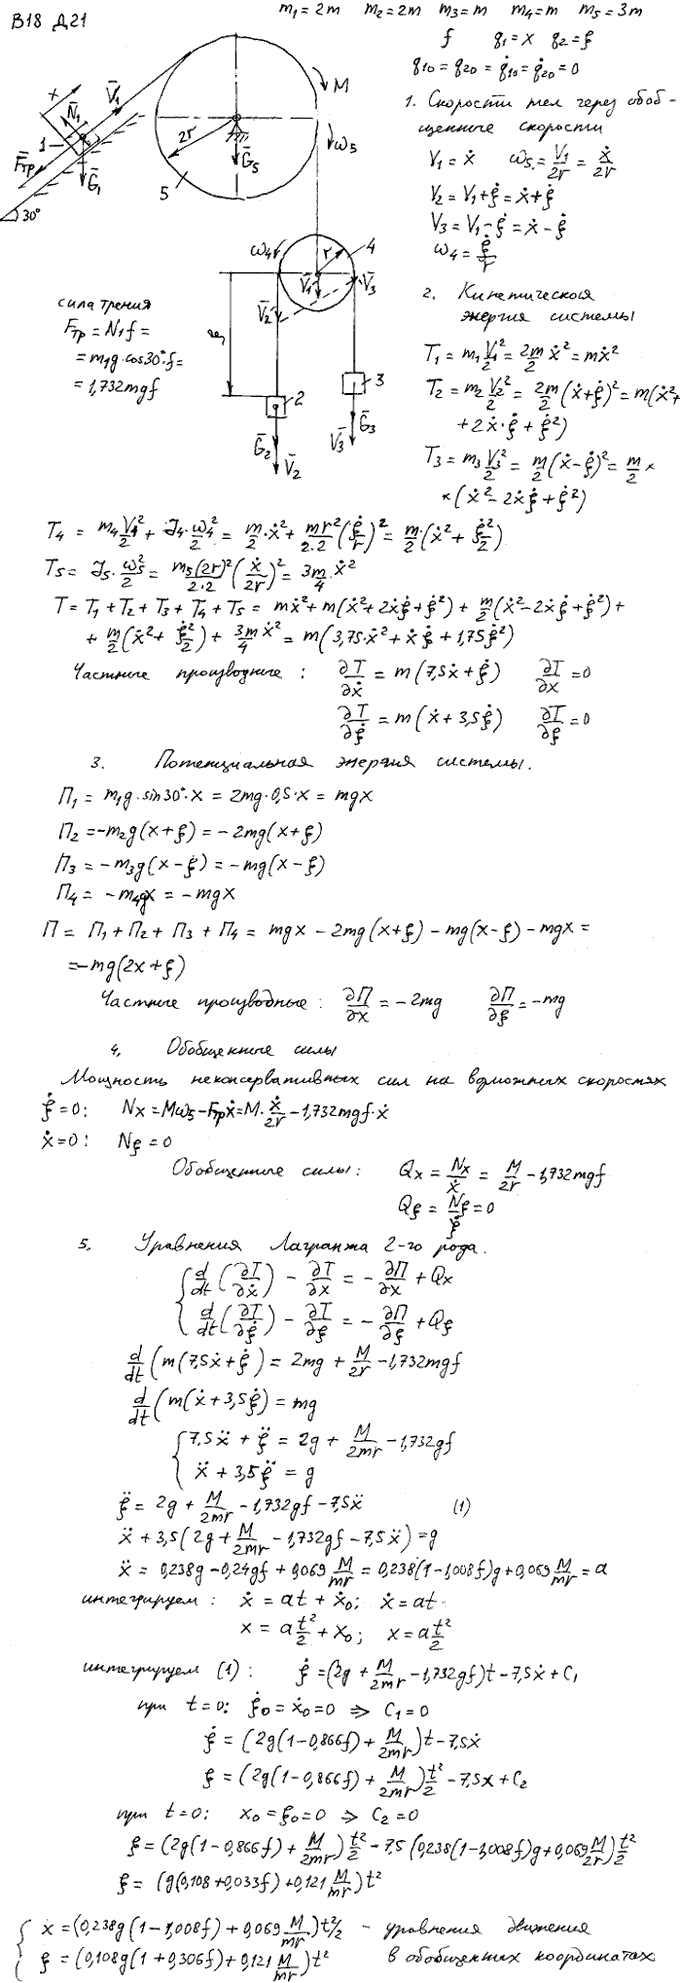 В18 Д21
m₁=2m m₂=2m m₃=m m₄=m m₅=3m
f q₁=x q₂=ξ
q₁₀=q₂₀=q̇₁₀=q̇₂₀=0
+
N̄₁
V̄₁
1
F̄тр
Ḡ₁
30°
2r
5
Ḡ₅
M
ω₅
ω₄
r
4
V̄₁
V̄₂
V̄₃
ξ
2
3
Ḡ₂
V̄₂
Ḡ₃
V̄₃
сила трения
Fтр = N₁f =
= m₁g·cos30°f=
= 1,732mgf
1. Скорости тел через обоб-
щенные скорости
V₁ = ẋ ω₅ = V₁/2r = ẋ/2r
V₂ = V₁+ξ̇ = ẋ+ξ̇
V₃ = V₁-ξ̇ = ẋ-ξ̇
ω₄ = ξ̇/r
2. Кинетическая
энергия системы
T₁ = m₁V₁²/2 = 2m/2 ẋ² = mẋ²
T₂ = m₂V₂²/2 = 2m/2 (ẋ+ξ̇)² = m(ẋ²+
+ 2ẋ·ξ̇ + ξ̇²)
T₃ = m₃V₃²/2 = m/2 (ẋ-ξ̇)² = m/2 ×
×(ẋ²-2ẋξ̇+ξ̇²)
T₄ = m₄V₁²/2 + J₄·ω₄²/2 = m/2·ẋ² + mr²/2·2 (ξ̇/r)² = m/2·(ẋ²+ξ̇²/2)
T₅ = J₅·ω₅²/2 = m₅(2r)²/2·2 (ẋ/2r)² = 3m/4·ẋ²
T = T₁+T₂+T₃+T₄+T₅ = mẋ²+m(ẋ²+2ẋξ̇+ξ̇²) + m/2(ẋ²-2ẋξ̇+ξ̇²)+
+ m/2(ẋ²+ξ̇²/2) + 3m/4 ẋ² = m(3,75·ẋ²+ẋξ̇+1,75ξ̇²)
Частные производные: ∂T/∂ẋ = m(7,5ẋ+ξ̇) ∂T/∂x = 0
∂T/∂ξ̇ = m(ẋ+3,5ξ̇) ∂T/∂ξ = 0
3. Потенциальная энергия системы.
П₁ = m₁g·sin30°·x = 2mg·0,5·x = mgx
П₂ = -m₂g(x+ξ) = -2mg(x+ξ)
П₃ = -m₃g(x-ξ) = -mg(x-ξ)
П₄ = -m₄gx = -mgx
П = П₁+П₂+П₃+П₄ = mgx-2mg(x+ξ)-mg(x-ξ)-mgx =
=-mg(2x+ξ)
Частные производные: ∂П/∂x = -2mg ∂П/∂ξ = -mg
4. Обобщенные силы
Мощность неконсервативных сил на возможных скоростях
ξ̇=0: Nx = Mω₅-Fтрẋ = M·ẋ/2r - 1,732mgf·ẋ
ẋ=0: Nξ = 0
Обобщенные силы: Qx = Nx/ẋ = M/2r - 1,732mgf
Qξ = Nξ/ξ̇ = 0
5. Уравнения Лагранжа 2-го рода.
{ d/dt(∂T/∂ẋ) - ∂T/∂x = -∂П/∂x + Qx
d/dt(∂T/∂ξ̇) - ∂T/∂ξ = -∂П/∂ξ + Qξ
d/dt (m(7,5ẋ+ξ̇) = 2mg + M/2r - 1,732mgf
d/dt (m(ẋ+3,5ξ̇) = mg
{ 7,5ẍ+ξ̈ = 2g + M/2mr - 1,732gf
ẍ+3,5ξ̈ = g
ξ̈ = 2g + M/2mr - 1,732gf-7,5ẍ (1)
ẍ+3,5(2g+M/2mr-1,732gf-7,5ẍ) = g
ẍ = 0,238g-0,24gf+0,069 M/mr = 0,238(1-1,008f)g+0,069 M/mr = a
интегрируем: ẋ = at+ẋ₀; ẋ = at
x = at²/2 + x₀; x = at²/2
интегрируем (1): ξ̇ = (2g+M/2mr-1,732gf)t-7,5ẋ+C₁
при t=0: ξ̇₀=ẋ₀=0 ⇒ C₁=0
ξ̇ = (2g(1-0,866f)+M/2mr)t-7,5ẋ
ξ = (2g(1-0,866f)+M/2mr)t²/2 - 7,5x+C₂
при t=0: x₀=ξ₀=0 ⇒ C₂=0
ξ = (2g(1-0,866f)+M/2mr)t²/2 - 7,5(0,238(1-1,008f)g+0,069M/2r)t²/2
ξ = (g(0,108+0,033f)+0,121 M/mr)t²
{ x = (0,238g(1-1,008f)+0,069 M/mr)t²/2 - уравнения движения
ξ = (0,108g(1+0,306f)+0,121 M/mr)t² в обобщенных координатах